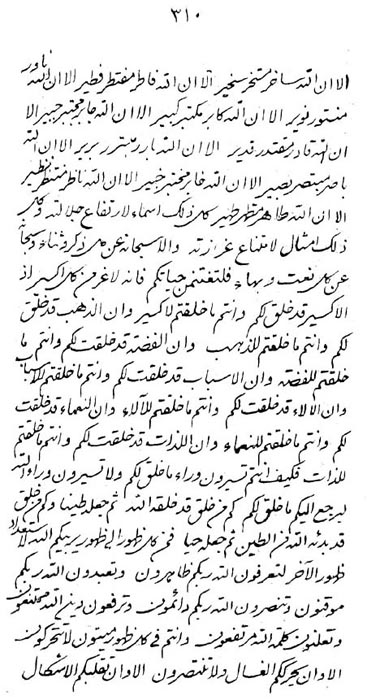 ٣١٠
الا ان الله ساخر مستخر سخیر الا ان الله فاطر مفتطر فطیر الا ان الله ناور
منتور نویر الا ان الله کابر مکتبر کبیر الا ان الله جابر مجتبر جبیر الا
ان الله قادر مقتدر قدیر الا ان الله بارر مبترر بریر الا ان الله
باصر مبتصر بصیر الا ان الله خابر مختبر خبیر الا ان الله ناظر منتظر نظیر
الا ان الله ظاهر مظتهر ظهیر کل ذلک اسماء لارتفاع جلالته وکل
ذلک امثال لامتناع عزازته والا سبحانه عن کل ذکر وثناء و
عن کل نعت وبهاء فلتغتنمن حیاتکم فانه لاعز من کل اکسیر اذ
الاکسیر قد خلق لکم وانتم ما خلقتم لاکسیر وان الذهب قد خلق
لکم وانتم ما خلقتم للذهب وان الفضة قد خلقت لکم وانتم ما
خلقتم للفضة وان الاسباب قد خلقت لکم وانتم ما خلقتم للاسباب
وان الالاء قد خلقت لکم وانتم ما خلقتم للالاء وان النعماء قد خلقت
لکم وانتم ما خلقتم للنعماء وان اللذات قد خلقت لکم وانتم ما خلقتم
للذات فکیف انتم تسیرون وراء ما خلق لکم ولا تسیرون وراء الله
لیرجع الیکم ما خلق لکم کم من خلق قد خلقه الله ثم جعل طینا وکم من خلق
قد بدئه الله من الطین ثم جعل حیا فی کل ظهور الی ظهور یربیکم الله لاستعداد
ظهور الآخر لتعرفون الله ربکم ظاهرون وتعبدون الله ربکم
موقنون وتنصرون الله ربکم دائمون وترفعون دین الله ممتنعون
وتعلنون کلمة الله مرتفعون وانتم فی کل ظهور میتون لا تتحرکون
الا وان یحرککم الغسال ولا تنتصرون الا وان تقلبکم الاشکال